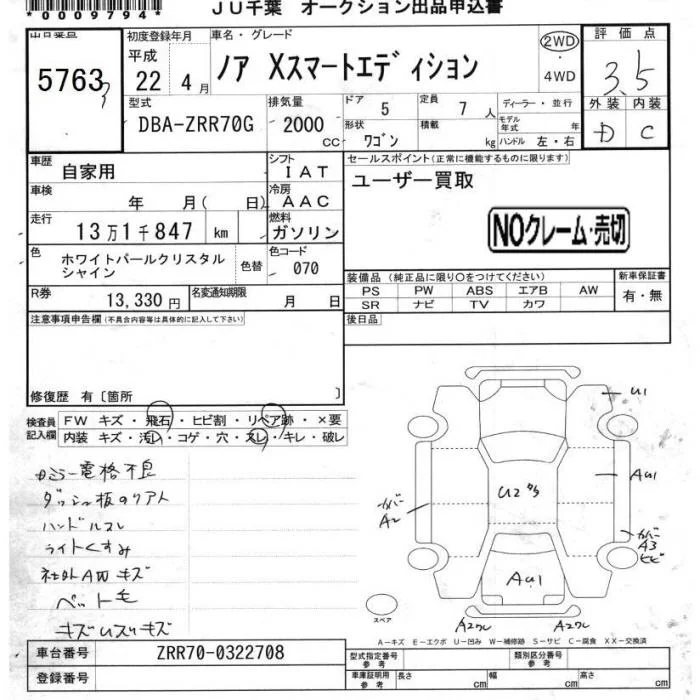 *0009794*
JU千葉 オークション出品申込書
出品番号
5763
初度登録年月
平成
22年 4月
車名・グレード
ノア Xスマートエディション
2WD
・
4WD
評価点
3.5
外装 内装
D C
型式
DBA-ZRR70G
排気量
2000
cc
ドア 5
形状 ワゴン
定員 7人
積載 kg
ディーラー・並行
モデル年式 年
ハンドル 左・右
車歴 自家用
シフト IAT
車検 年 月( 日)
冷房 AAC
走行 13万1千847 km
燃料 ガソリン
色 ホワイトパールクリスタル
シャイン
色替
色コード 070
R券 13,330円
名変通知期限 月 日
セールスポイント(正常に機能するものに限ります)
ユーザー買取
NOクレーム・売切
装備品(純正品に限り○をつけてください)
新車保証書
PS PW ABS エアB AW
SR ナビ TV カワ
有・無
後日品
注意事項申告欄(不具合内容等は具体的に記入して下さい)
修復歴 有〔箇所 〕
検査員
記入欄
FW キズ・飛石・ヒビ割・リペア跡・×要
内装 キズ・汚レ・コゲ・穴・スレ・キレ・破レ
カラー電格不良
ダッシュ板のリアト
ハンドルスレ
ライトくすみ
社外AWキズ
ペット毛
U1
AU1
U2
カバー
A2
カバー
A3
ヒビ
AU1
A2ワレ
A2ワレ
スペア
A-キズ E-エクボ U-凹み W-補修跡 S-サビ C-腐食 XX-交換済
車台番号 ZRR70-0322708
登録番号
型式指定番号
参考
類別区分番号
参考
車庫証明用
参考
長さ cm
幅 cm
高さ cm